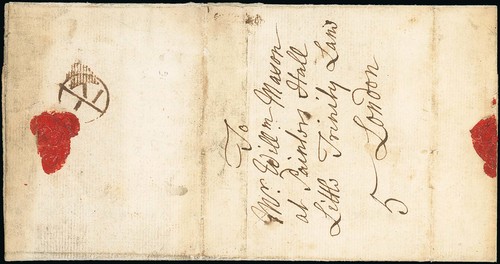 To
Mr. Willm Mason
at Painters Hall
Little Trinity Lane
5 London